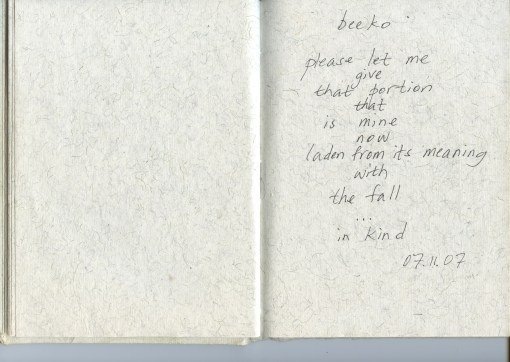 beeko
please let me
give
that portion
that
is mine
now
laden from its meaning
with
the fall
...
in kind
07.11.07